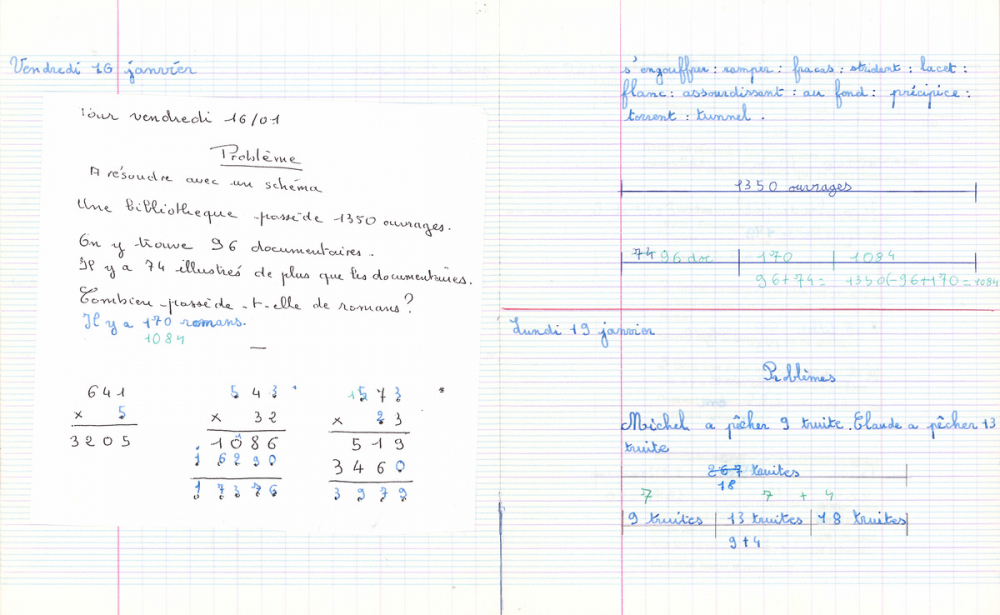 Vendredi 16 janvier
Pour vendredi 16/01
Problème
A résoudre avec un schéma
Une bibliotheque possède 1350 ouvrages.
On y trouve 96 documentaires.
Il y a 74 illustrés de plus que les documentaires.
Combien possède-t-elle de romans?
Il y a 170 romans.
1084
641
x 5
3205
543
x 32
1086
16290
17376
1573
x 23
519
3460
3979
s'engouffrer : ramper : fracas : strident : lacet :
flanc : assourdissant : au fond : précipice :
torrent : tunnel .
1350 ouvrages
74 96 doc 170 1084
96+74= 1350(-96+170=1084
Lundi 19 janvier
Problèmes
Michel a pêcher 9 truite. Claude a pêcher 13
truite
267 truites
18
7 7 + 4
9 truites 13 truites 18 truites
9+4